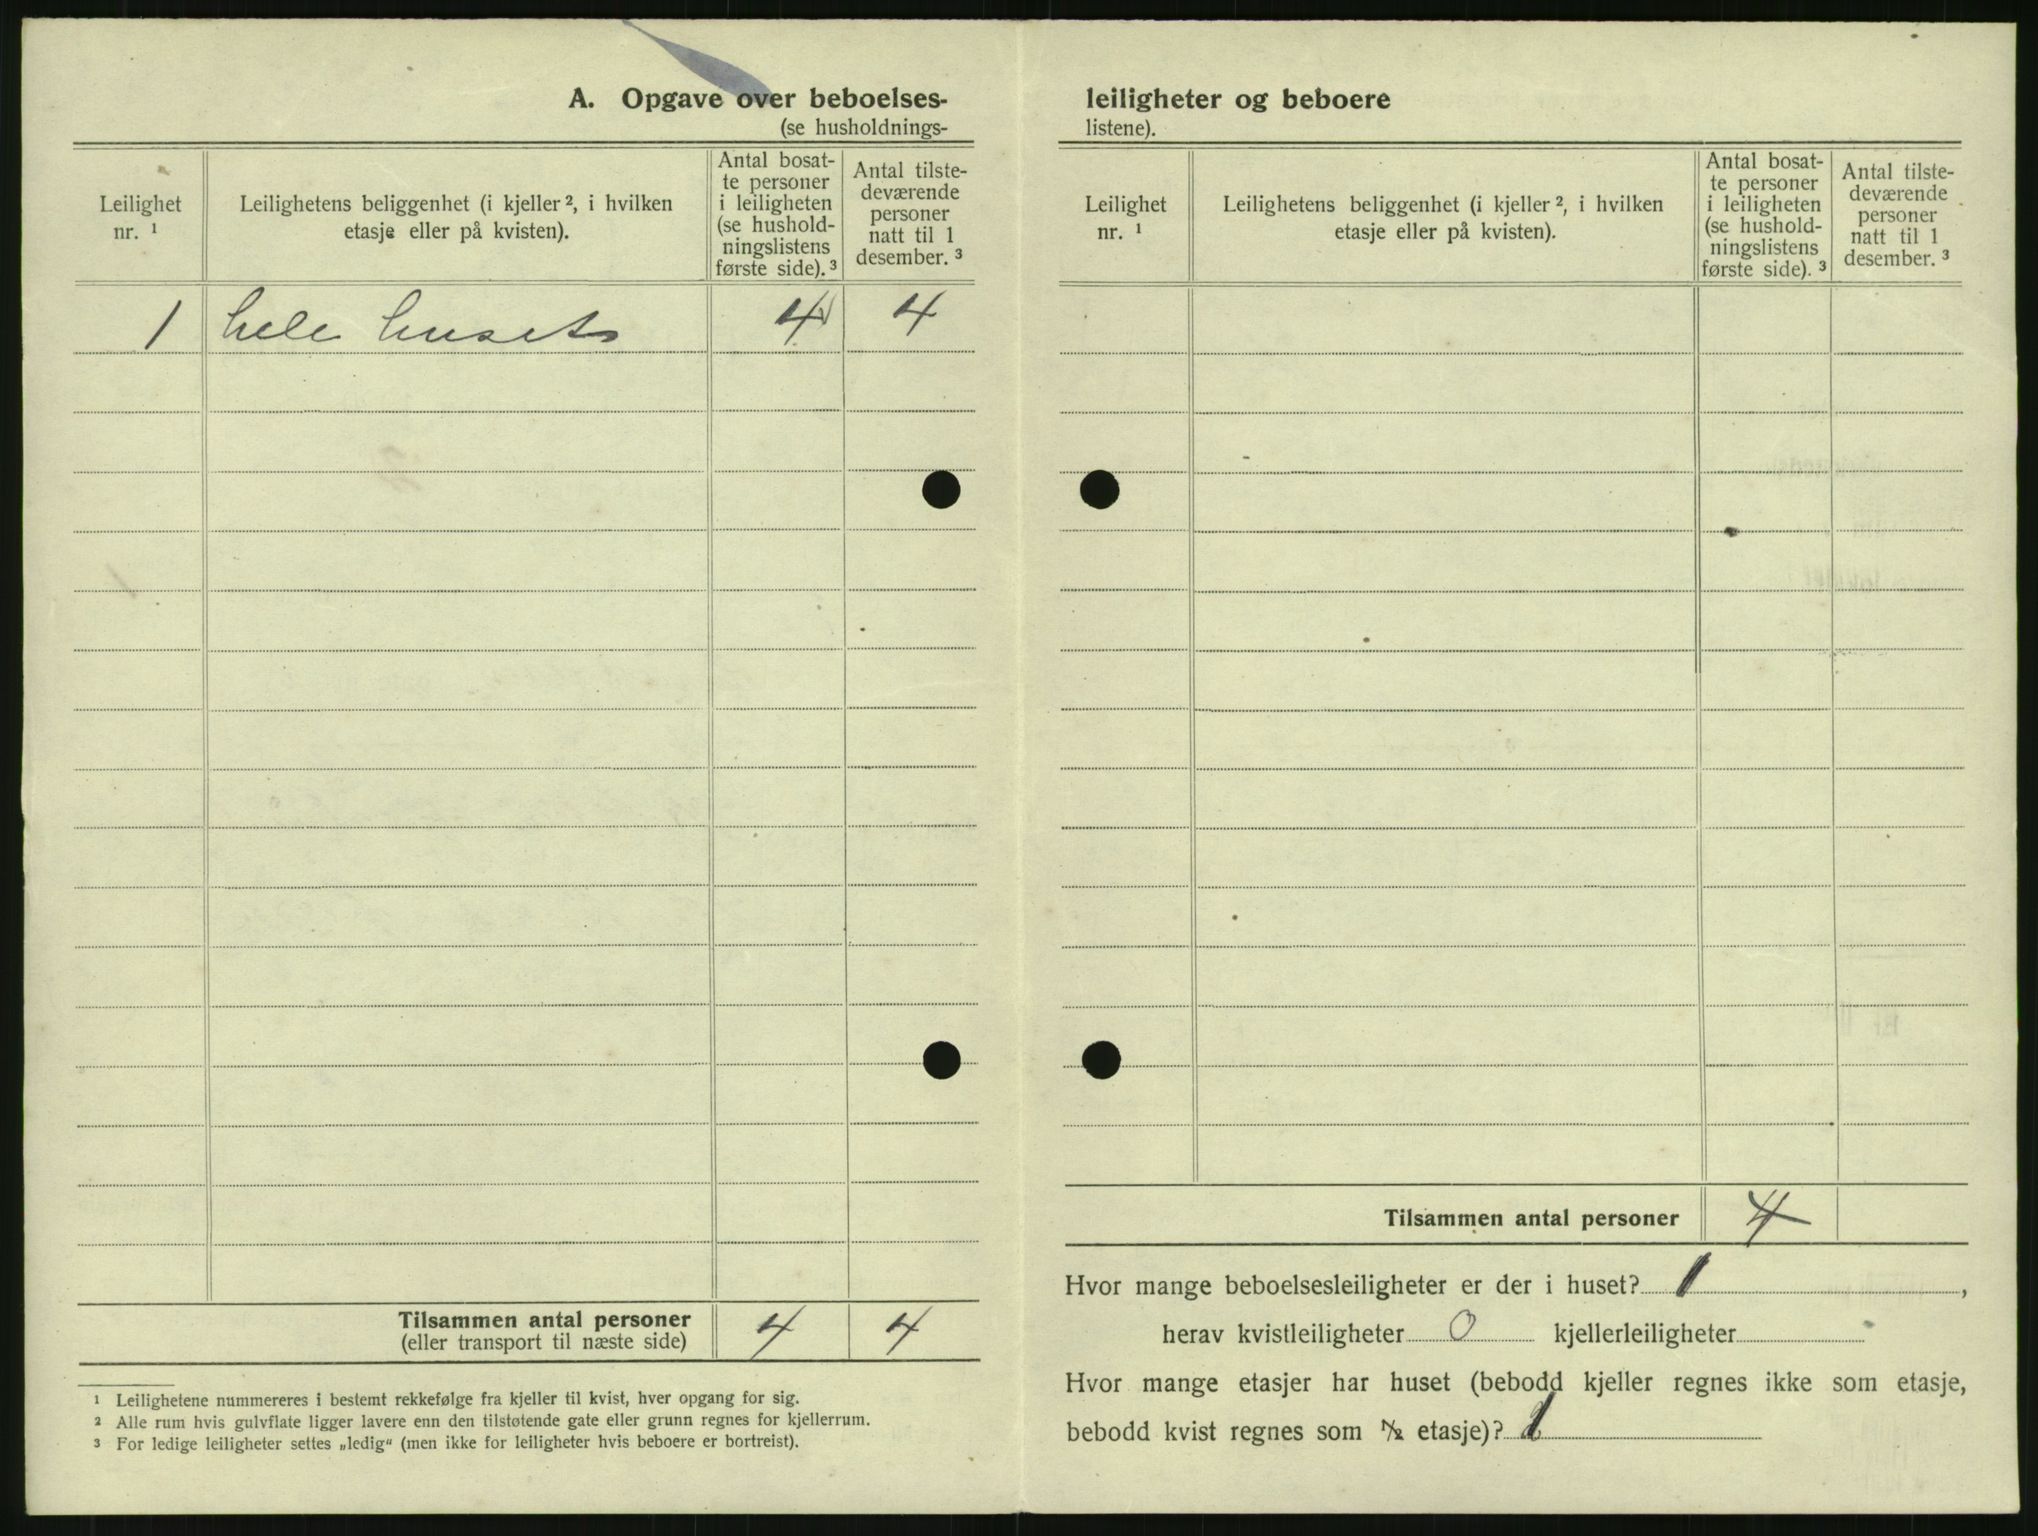 A. Opgave over beboelses-
(se husholdnings-
Leilighet
nr. ¹
Leilighetens beliggenhet (i kjeller ², i hvilken
etasje eller på kvisten).
Antal bosat-
te personer
i leiligheten
(se hushold-
ningslistens
første side). ³
Antal tilste-
deværende
personer
natt til 1
desember. ³
1 hele huset 4 4
Tilsammen antal personer 4 4
(eller transport til næste side)
¹ Leilighetene nummereres i bestemt rekkefølge fra kjeller til kvist, hver opgang for sig.
² Alle rum hvis gulvflate ligger lavere enn den tilstøtende gate eller grunn regnes for kjellerrum.
³ For ledige leiligheter settes „ledig“ (men ikke for leiligheter hvis beboere er bortreist).
leiligheter og beboere
listene).
Leilighet
nr. ¹
Leilighetens beliggenhet (i kjeller ², i hvilken
etasje eller på kvisten).
Antal bosat-
te personer
i leiligheten
(se hushold-
ningslistens
første side). ³
Antal tilste-
deværende
personer
natt til 1
desember. ³
Tilsammen antal personer 4
Hvor mange beboelsesleiligheter er der i huset? 1,
herav kvistleiligheter 0 kjellerleiligheter
Hvor mange etasjer har huset (bebodd kjeller regnes ikke som etasje,
bebodd kvist regnes som ½ etasje)?